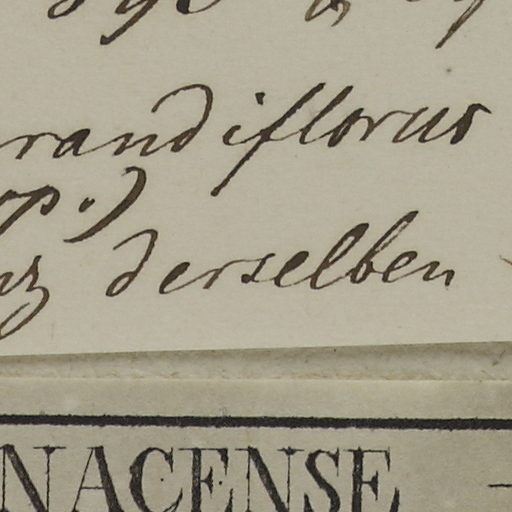 randiflorus
op.)
nz derselben
NACENSE